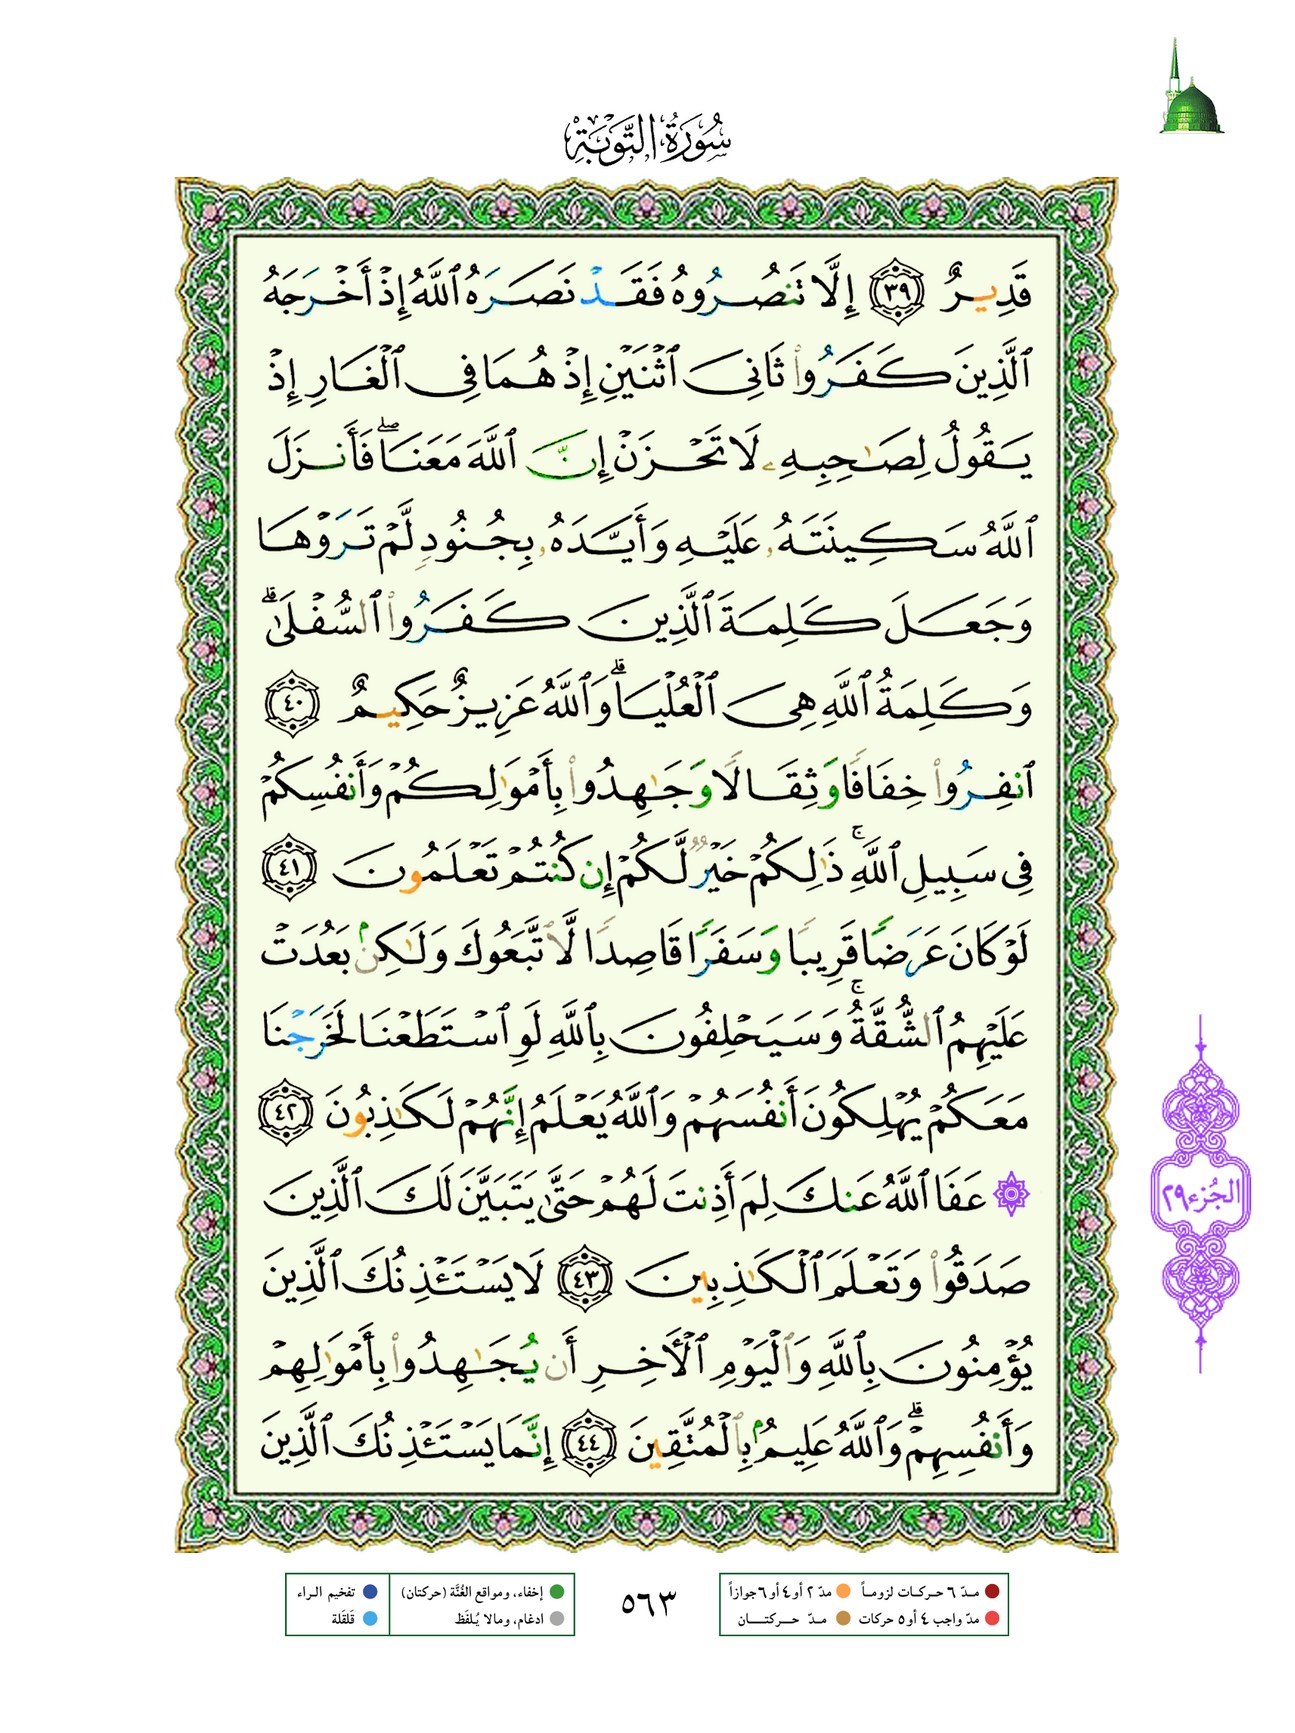 سُورَةُ التَّوْبَةِ
قَدِيرٌ ﴿٣٩﴾ إِلَّا تَنصُرُوهُ فَقَدْ نَصَرَهُ ٱللَّهُ إِذْ أَخْرَجَهُ
ٱلَّذِينَ كَفَرُوا۟ ثَانِىَ ٱثْنَيْنِ إِذْ هُمَا فِى ٱلْغَارِ إِذْ
يَقُولُ لِصَـٰحِبِهِۦ لَا تَحْزَنْ إِنَّ ٱللَّهَ مَعَنَا ۖ فَأَنزَلَ
ٱللَّهُ سَكِينَتَهُۥ عَلَيْهِ وَأَيَّدَهُۥ بِجُنُودٍ لَّمْ تَرَوْهَا
وَجَعَلَ كَلِمَةَ ٱلَّذِينَ كَفَرُوا۟ ٱلسُّفْلَىٰ ۗ
وَكَلِمَةُ ٱللَّهِ هِىَ ٱلْعُلْيَا ۗ وَٱللَّهُ عَزِيزٌ حَكِيمٌ ﴿٤٠﴾
ٱنفِرُوا۟ خِفَافًا وَثِقَالًا وَجَـٰهِدُوا۟ بِأَمْوَٰلِكُمْ وَأَنفُسِكُمْ
فِى سَبِيلِ ٱللَّهِ ۚ ذَٰلِكُمْ خَيْرٌ لَّكُمْ إِن كُنتُمْ تَعْلَمُونَ ﴿٤١﴾
لَوْ كَانَ عَرَضًا قَرِيبًا وَسَفَرًا قَاصِدًا لَّٱتَّبَعُوكَ وَلَـٰكِنۢ بَعُدَتْ
عَلَيْهِمُ ٱلشُّقَّةُ ۚ وَسَيَحْلِفُونَ بِٱللَّهِ لَوِ ٱسْتَطَعْنَا لَخَرَجْنَا
مَعَكُمْ يُهْلِكُونَ أَنفُسَهُمْ وَٱللَّهُ يَعْلَمُ إِنَّهُمْ لَكَـٰذِبُونَ ﴿٤٢﴾
۞ عَفَا ٱللَّهُ عَنكَ لِمَ أَذِنتَ لَهُمْ حَتَّىٰ يَتَبَيَّنَ لَكَ ٱلَّذِينَ
صَدَقُوا۟ وَتَعْلَمَ ٱلْكَـٰذِبِينَ ﴿٤٣﴾ لَا يَسْتَـْٔذِنُكَ ٱلَّذِينَ
يُؤْمِنُونَ بِٱللَّهِ وَٱلْيَوْمِ ٱلْـَٔاخِرِ أَن يُجَـٰهِدُوا۟ بِأَمْوَٰلِهِمْ
وَأَنفُسِهِمْ ۗ وَٱللَّهُ عَلِيمٌۢ بِٱلْمُتَّقِينَ ﴿٤٤﴾ إِنَّمَا يَسْتَـْٔذِنُكَ ٱلَّذِينَ
الجُزء ٢٩
مدّ ٦ حركات لزوماً
مدّ ٢ أو ٤ أو ٦ جوازاً
مدّ واجب ٤ أو ٥ حركات
مدّ حركتان
٥٦٣
إخفاء، ومواقع الغُنَّة (حركتان)
تفخيم الراء
ادغام، ومالا يُلفَظ
قلقلة